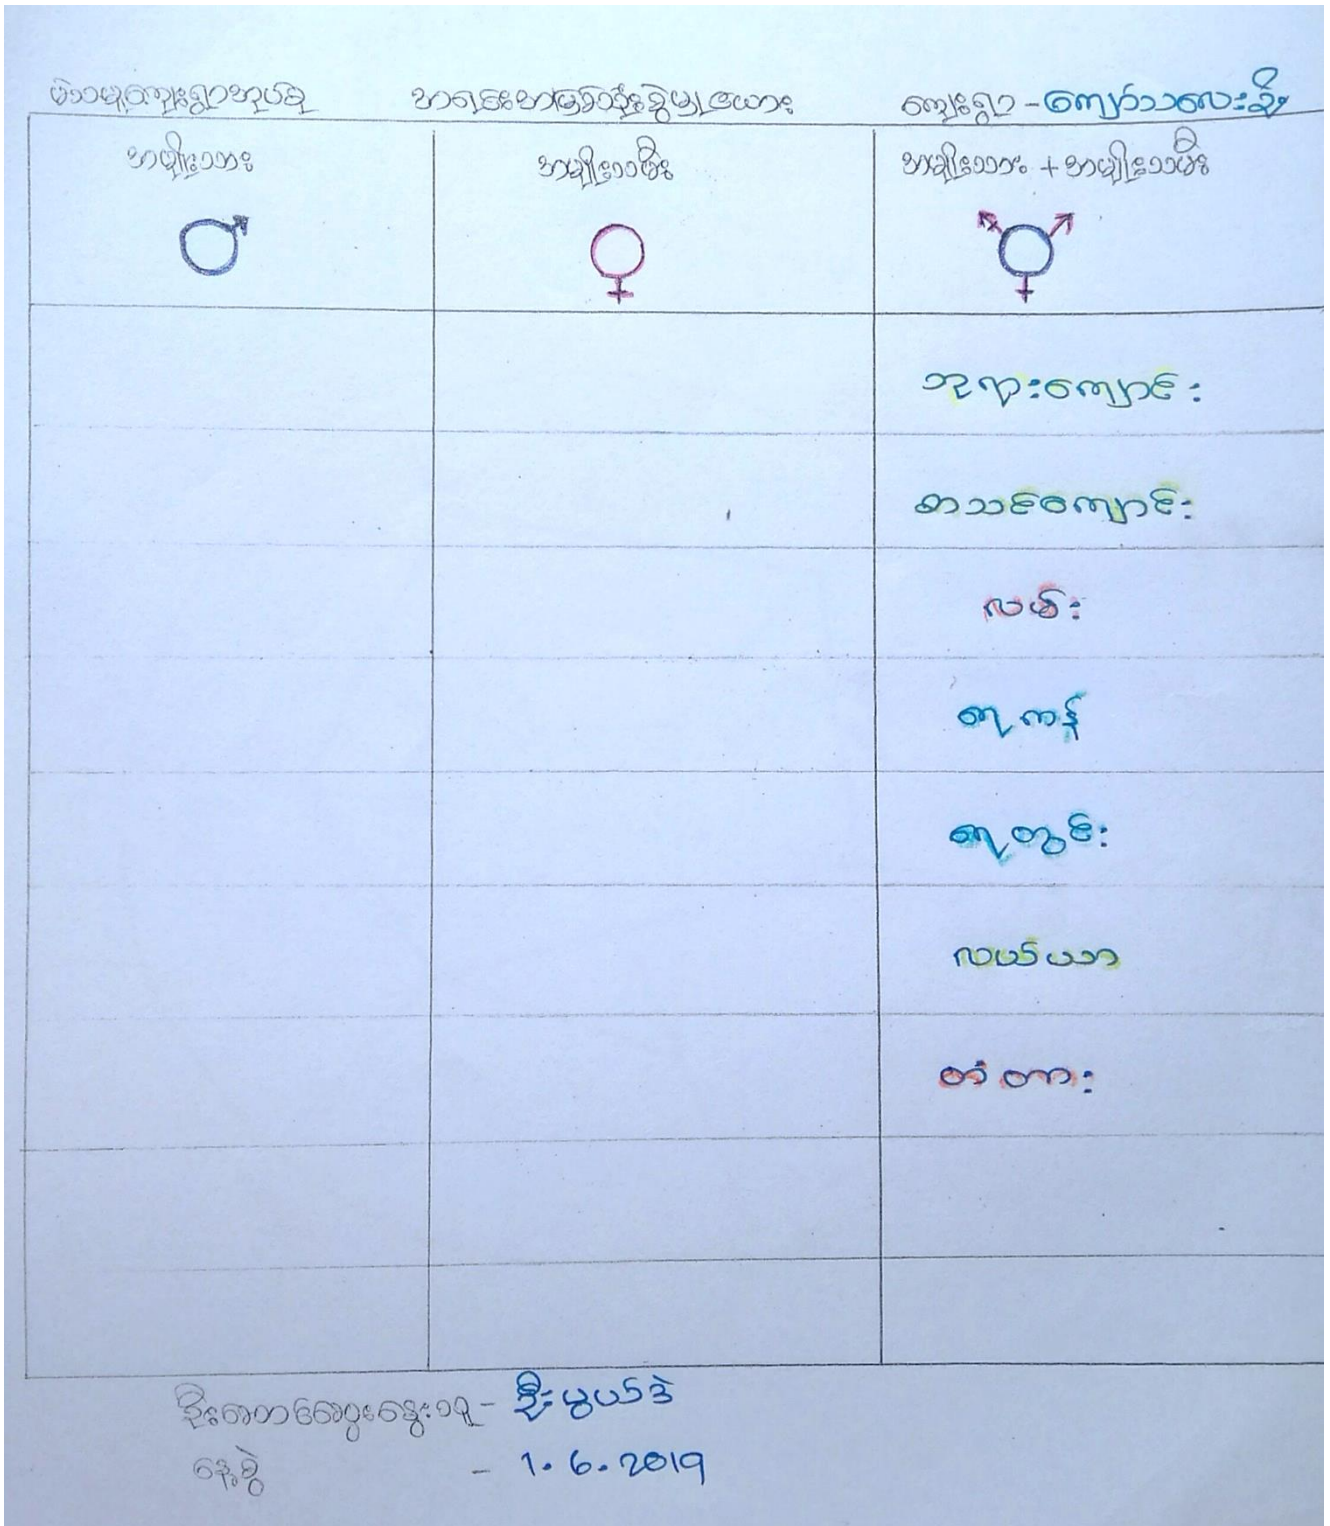 မဲသမူကျေးရွာအုပ်စု အရင်းအမြစ်သုံးစွဲမှုဇယား ကျေးရွာ - ကျော်သလေးခို
အမျိုးသား အမျိုးသမီး အမျိုးသား + အမျိုးသမီး
ဘုရားကျောင်း
စာသင်ကျောင်း
လမ်း
ရေကန်
ရေတွင်း
လယ်ယာ
တံတား
ဦးဆောင်ဆွေးနွေးသူ - ဦးမွယ်ဒဲ
နေ့စွဲ - 1.6.2019